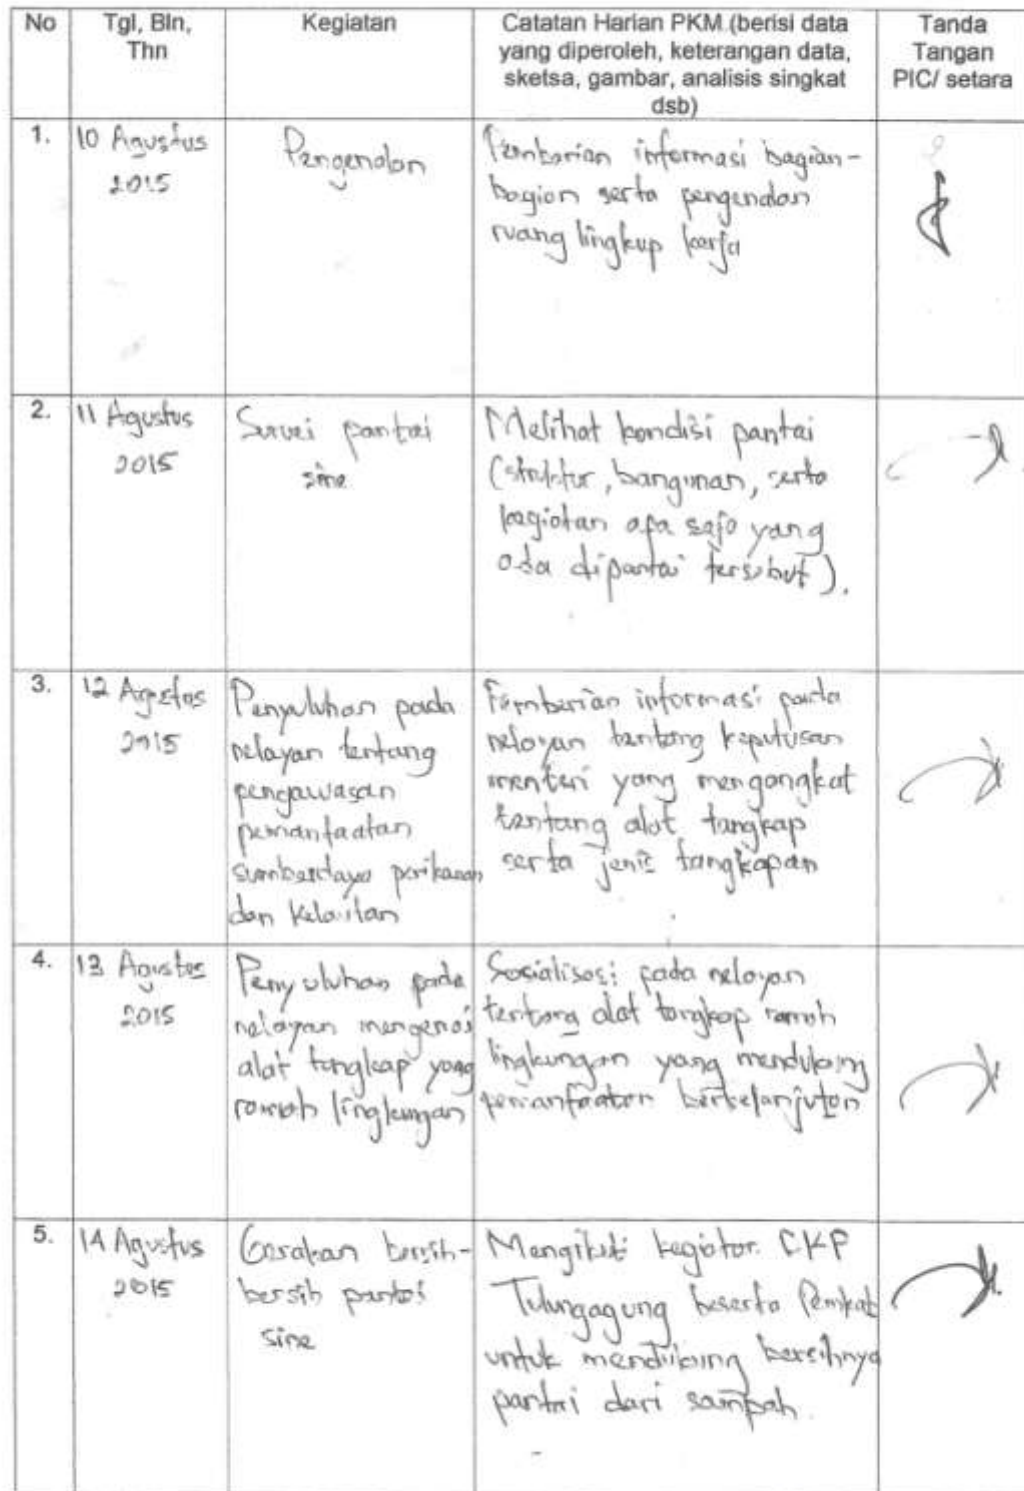 No
Tgl, Bln,
Thn
Kegiatan
Catatan Harian PKM (berisi data
yang diperoleh, keterangan data,
sketsa, gambar, analisis singkat
dsb)
Tanda
Tangan
PIC/ setara
1.
10 Agustus
2015
Pengenalan
Pemberian informasi bagian-
bagian serta pengenalan
ruang lingkup kerja
2.
11 Agustus
2015
Survei pantai
sine
Melihat kondisi pantai
(struktur, bangunan, serta
kegiatan apa saja yang
ada dipantai tersebut).
3.
12 Agustus
2015
Penyuluhan pada
nelayan tentang
pengawasan
pemanfaatan
sumberdaya perikanan
dan Kelautan
Pemberian informasi pada
nelayan tentang keputusan
menteri yang mengangkat
tentang alat tangkap
serta jenis tangkapan
4.
13 Agustus
2015
Penyuluhan pada
nelayan mengenai
alat tangkap yang
ramah lingkungan
Sosialisasi pada nelayan
tentang alat tangkap ramah
lingkungan yang mendukung
pemanfaatan berkelanjutan
5.
14 Agustus
2015
Gerakan bersih-
bersih pantai
sine
Mengikuti kegiatan DKP
Tulungagung beserta Pemkab
untuk mendukung bersihnya
pantai dari sampah.